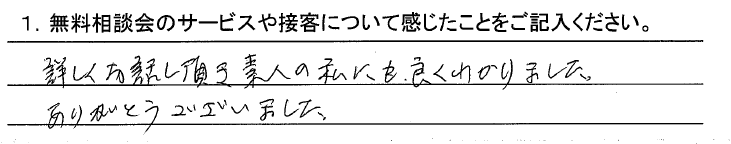 1. 無料相談会のサービスや接客について感じたことをご記入ください。
詳しくお話し頂き素人の私にも良くわかりました。
ありがとうございました。